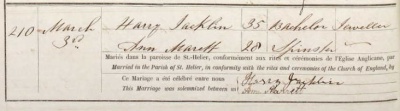 210 March 3rd Harry Jacklin 35 Bachelor Jeweller
Ann Marett 28 Spinster
Mariés dans la paroisse de St.-Hélier, conformément aux rites et cérémonies de l'Eglise Anglicane, par
Married in the Parish of St. Helier, in conformity with the rites and ceremonies of the Church of England, by
Ce Mariage a été célébré entre nous
This Marriage was solemnized between us
Harry Jacklin
Ann Marett